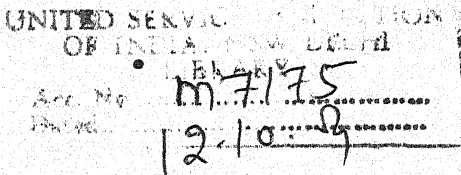 UNITED SERVIC
OF INDIA, NEW DELHI
LIBRARY
Acc. No m7175
12.10.